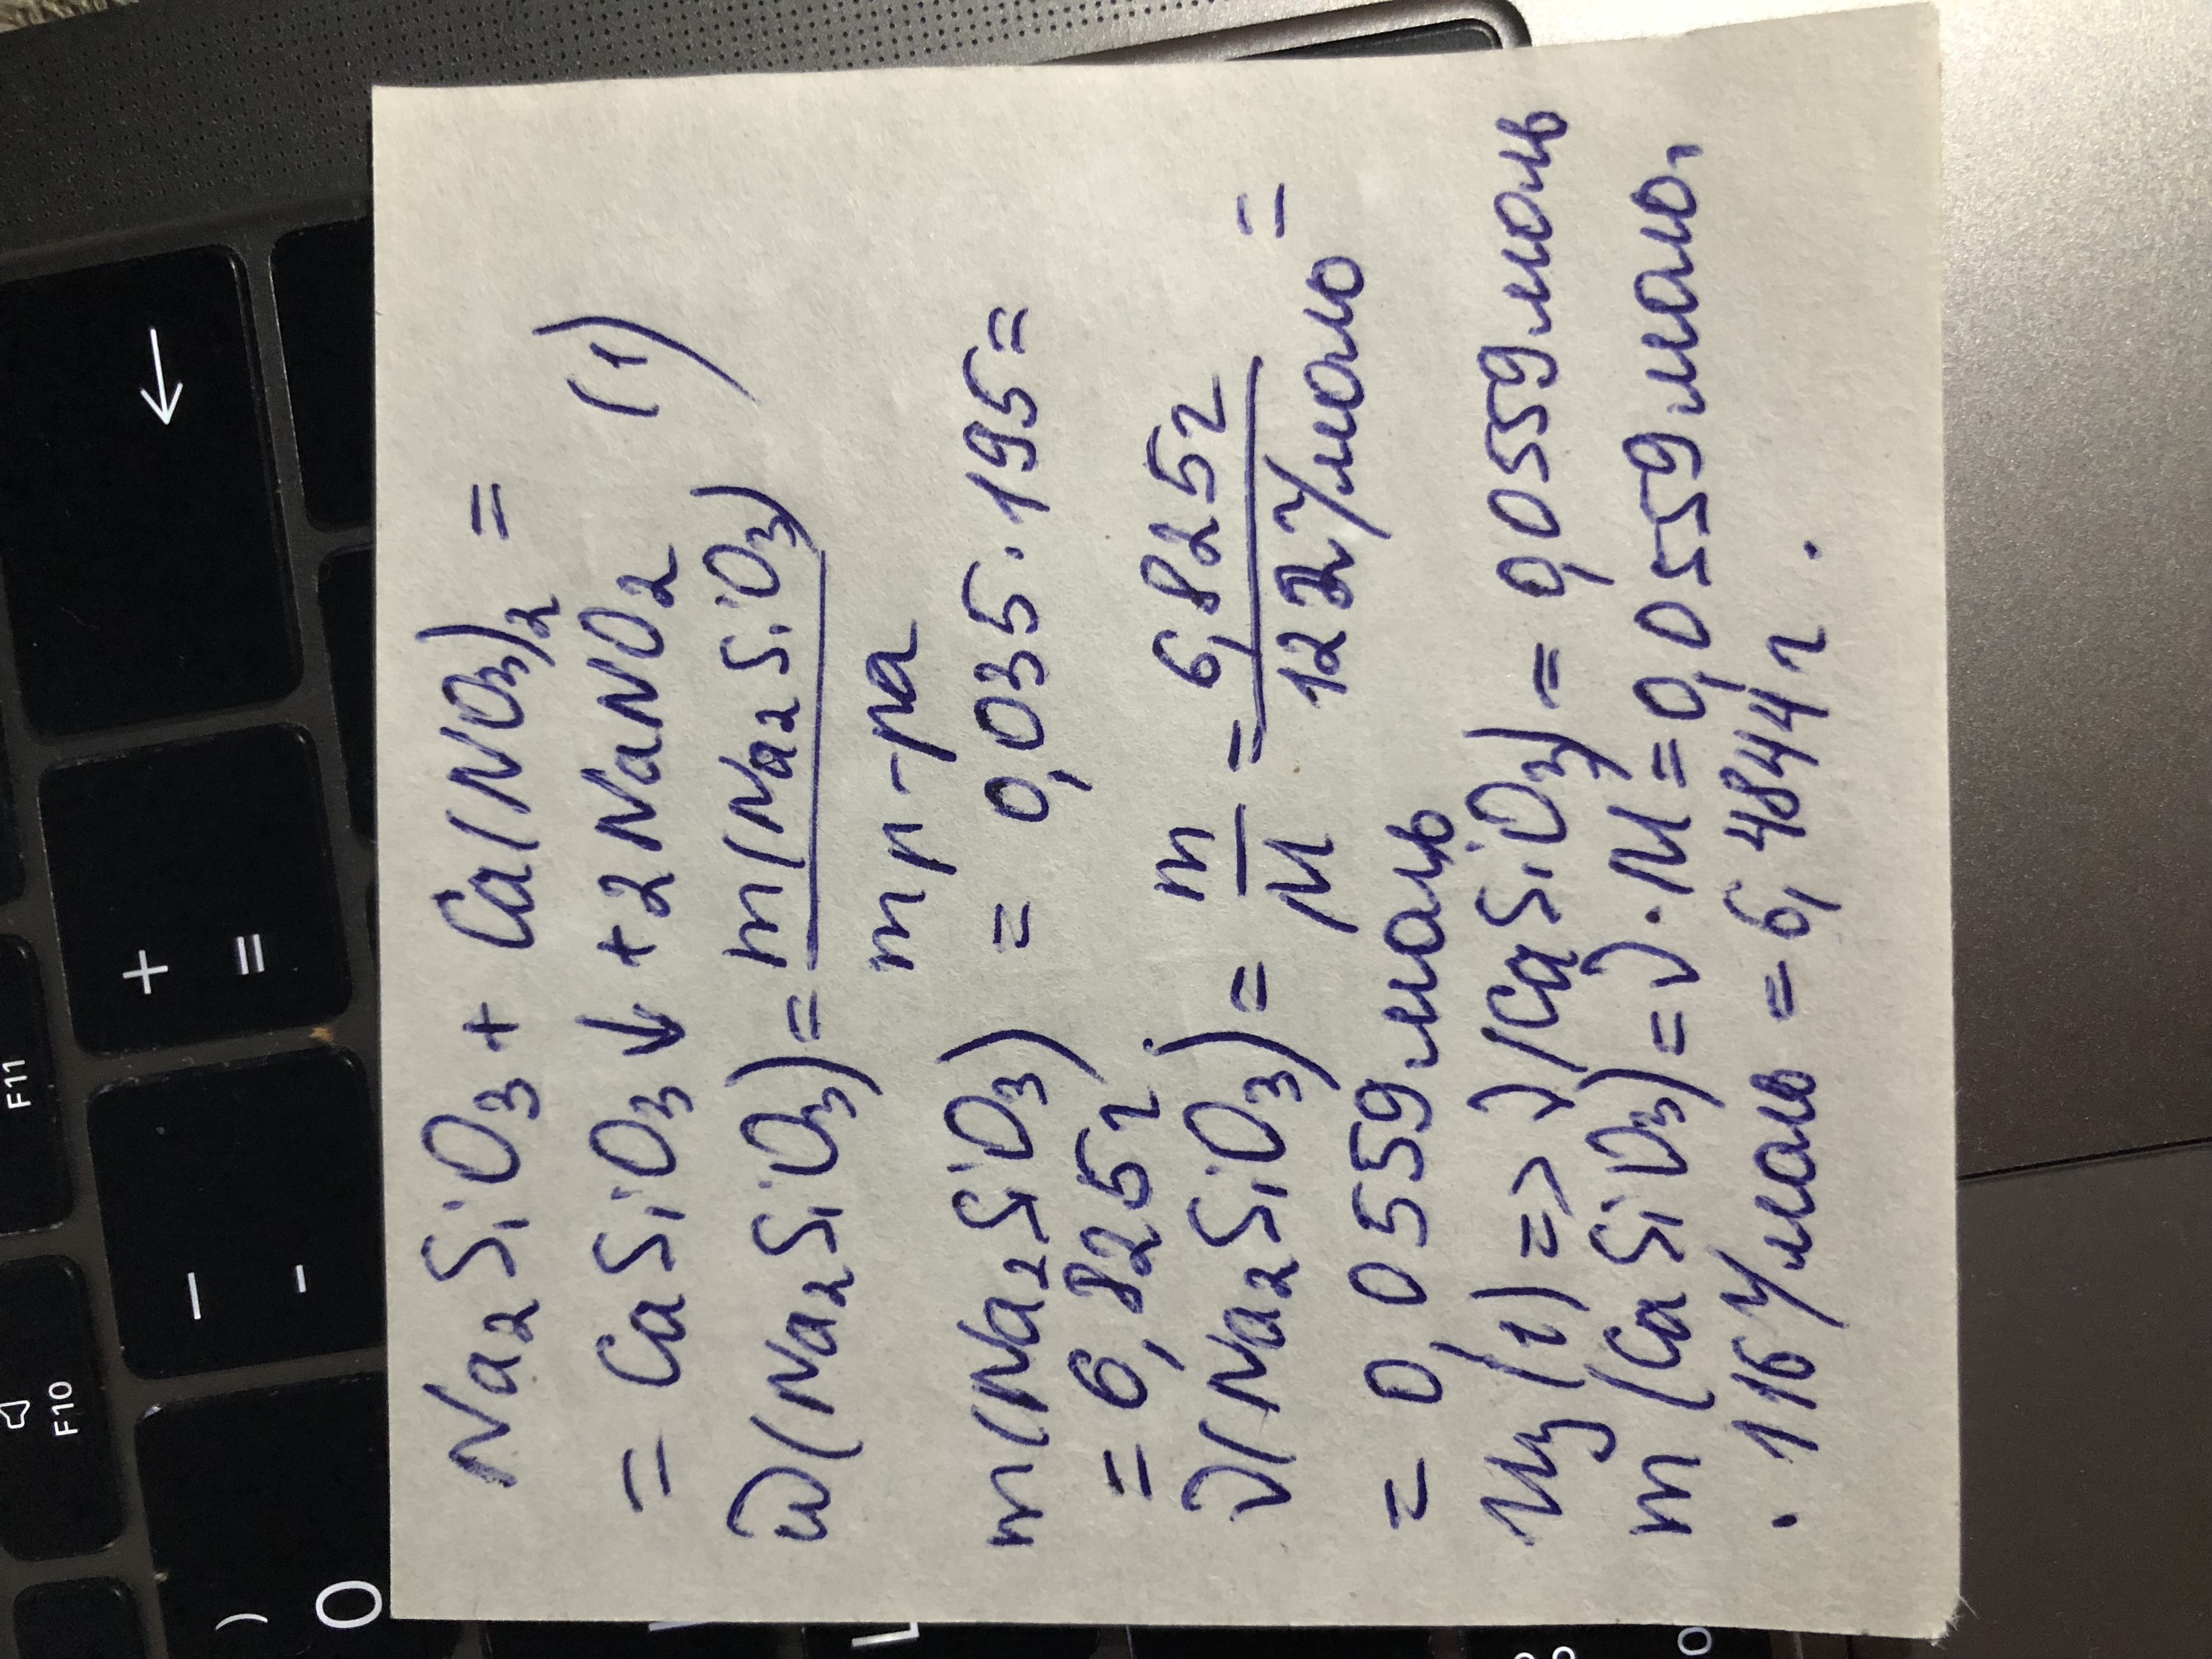 Na₂SiO₃ + Ca(NO₃)₂ =
= CaSiO₃ ↓ + 2NaNO₂ (1)
ω(Na₂SiO₃) = m(Na₂SiO₃)
m р-ра
m(Na₂SiO₃) = 0,035 · 195 =
= 6,825 г.
ν(Na₂SiO₃) = m/M = 6,825 г / 122 г/моль =
= 0,0559 моль
Из (1) => ν(CaSiO₃) = 0,0559 моль
m(CaSiO₃) = ν · M = 0,0559 моль ·
· 116 г/моль = 6,4844 г.
F11
F10
+
=
-
-
←
)
0
L